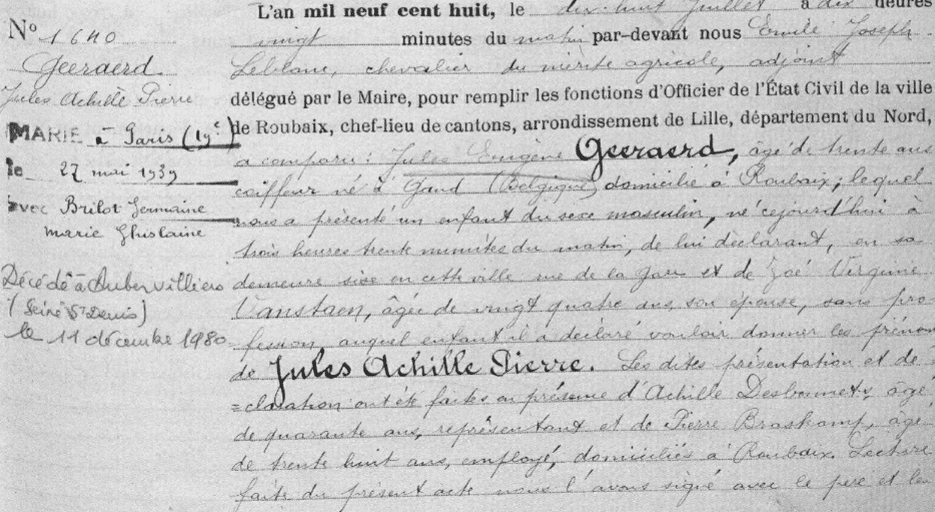 L'an mil neuf cent huit, le dix-huit Juillet à dix heures
vingt minutes du matin par-devant nous Emile Joseph
Leblanc, chevalier du mérite agricole, adjoint
délégué par le Maire, pour remplir les fonctions d'Officier de l'État Civil de la ville
de Roubaix, chef-lieu de cantons, arrondissement de Lille, département du Nord,
a comparu : Jules Eugène Geeraerd, âgé de trente ans
coiffeur né à Gand (Belgique) domicilié à Roubaix, lequel
nous a présenté un enfant du sexe masculin, né cejourd'hui à
trois heures trente minutes du matin, de lui déclarant, en sa
demeure sise en cette ville rue de la Gare et de Zoé Virginie
Vanstaen, âgée de vingt quatre ans, son épouse, sans pro-
fession, auquel enfant il a déclaré vouloir donner les prénom
de Jules Achille Pierre. Les dites présentation et dé-
=claration ont été faites en présence d'Achille Desbonnets, âgé
de quarante ans, représentant et de Pierre Braskamp, âgé
de trente huit ans, employé, domiciliés à Roubaix. Lecture
faite du présent acte nous l'avons signé avec le père et les
N° 1640
Geeraerd.
Jules Achille Pierre
MARIÉ à Paris (19e)
le 27 mai 1939
avec Brilot Germaine
Marie Ghislaine
Décédé à Aubervilliers
(Seine St-Denis)
le 11 décembre 1980